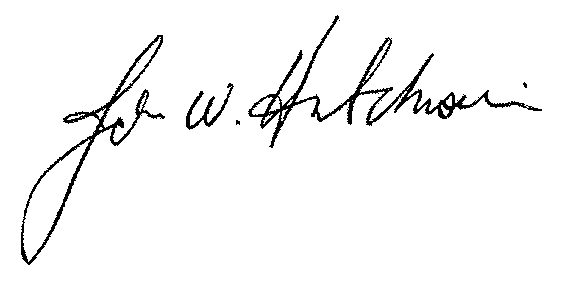 John W. Hutchinson